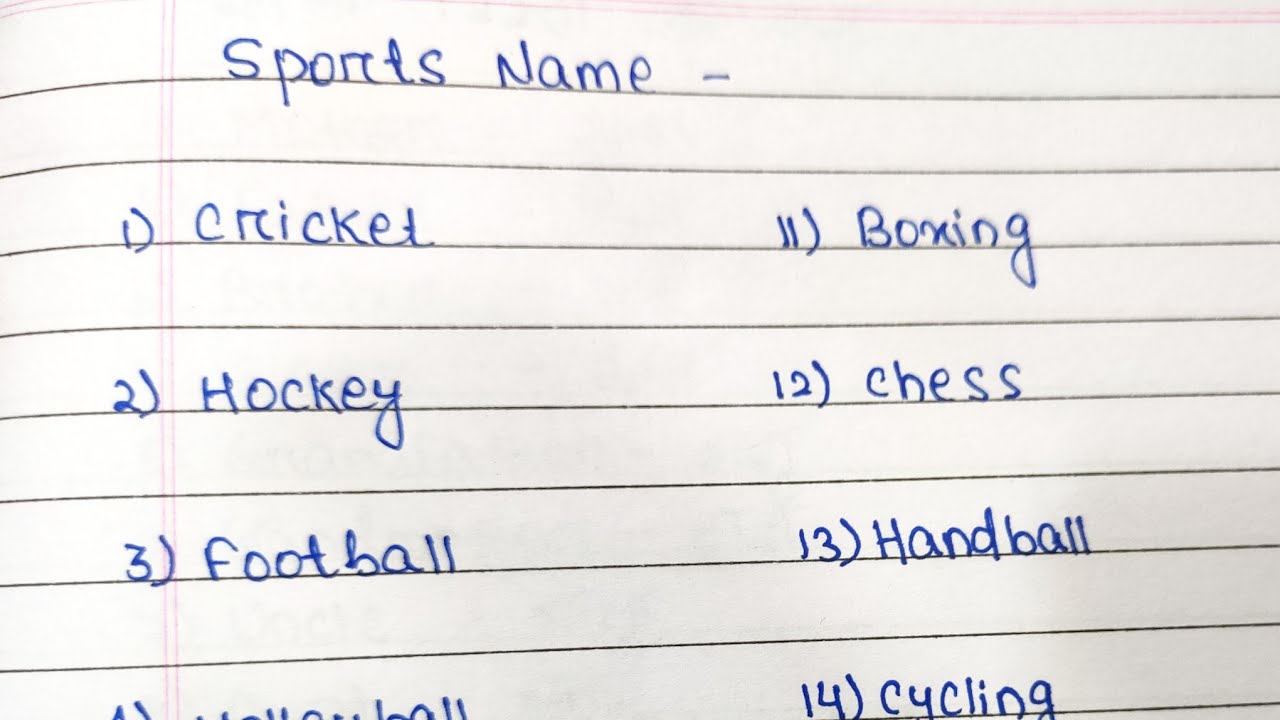 Sports Name -
1) Cricket
11) Boxing
2) Hockey
12) Chess
3) Football
13) Handball
4) Volleyball
14) Cycling